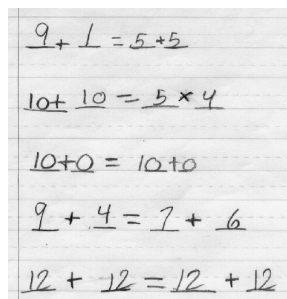 9 + 1 = 5 + 5
10 + 10 = 5 × 4
10 + 0 = 10 + 0
9 + 4 = 7 + 6
12 + 12 = 12 + 12